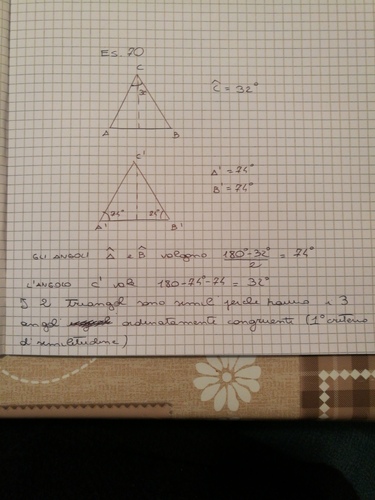 ES. 70
C
Ĉ = 32°
A B
C'
A' = 74°
B' = 74°
74° 74°
A' B'
GLI ANGOLI Â e B̂ valgono 180°-32°/2 = 74°
L'ANGOLO C' vale 180-74-74 = 32°
I 2 Triangoli sono simili perché hanno i 3
angoli ordinatamente congruenti (1° criterio
di similitudine)